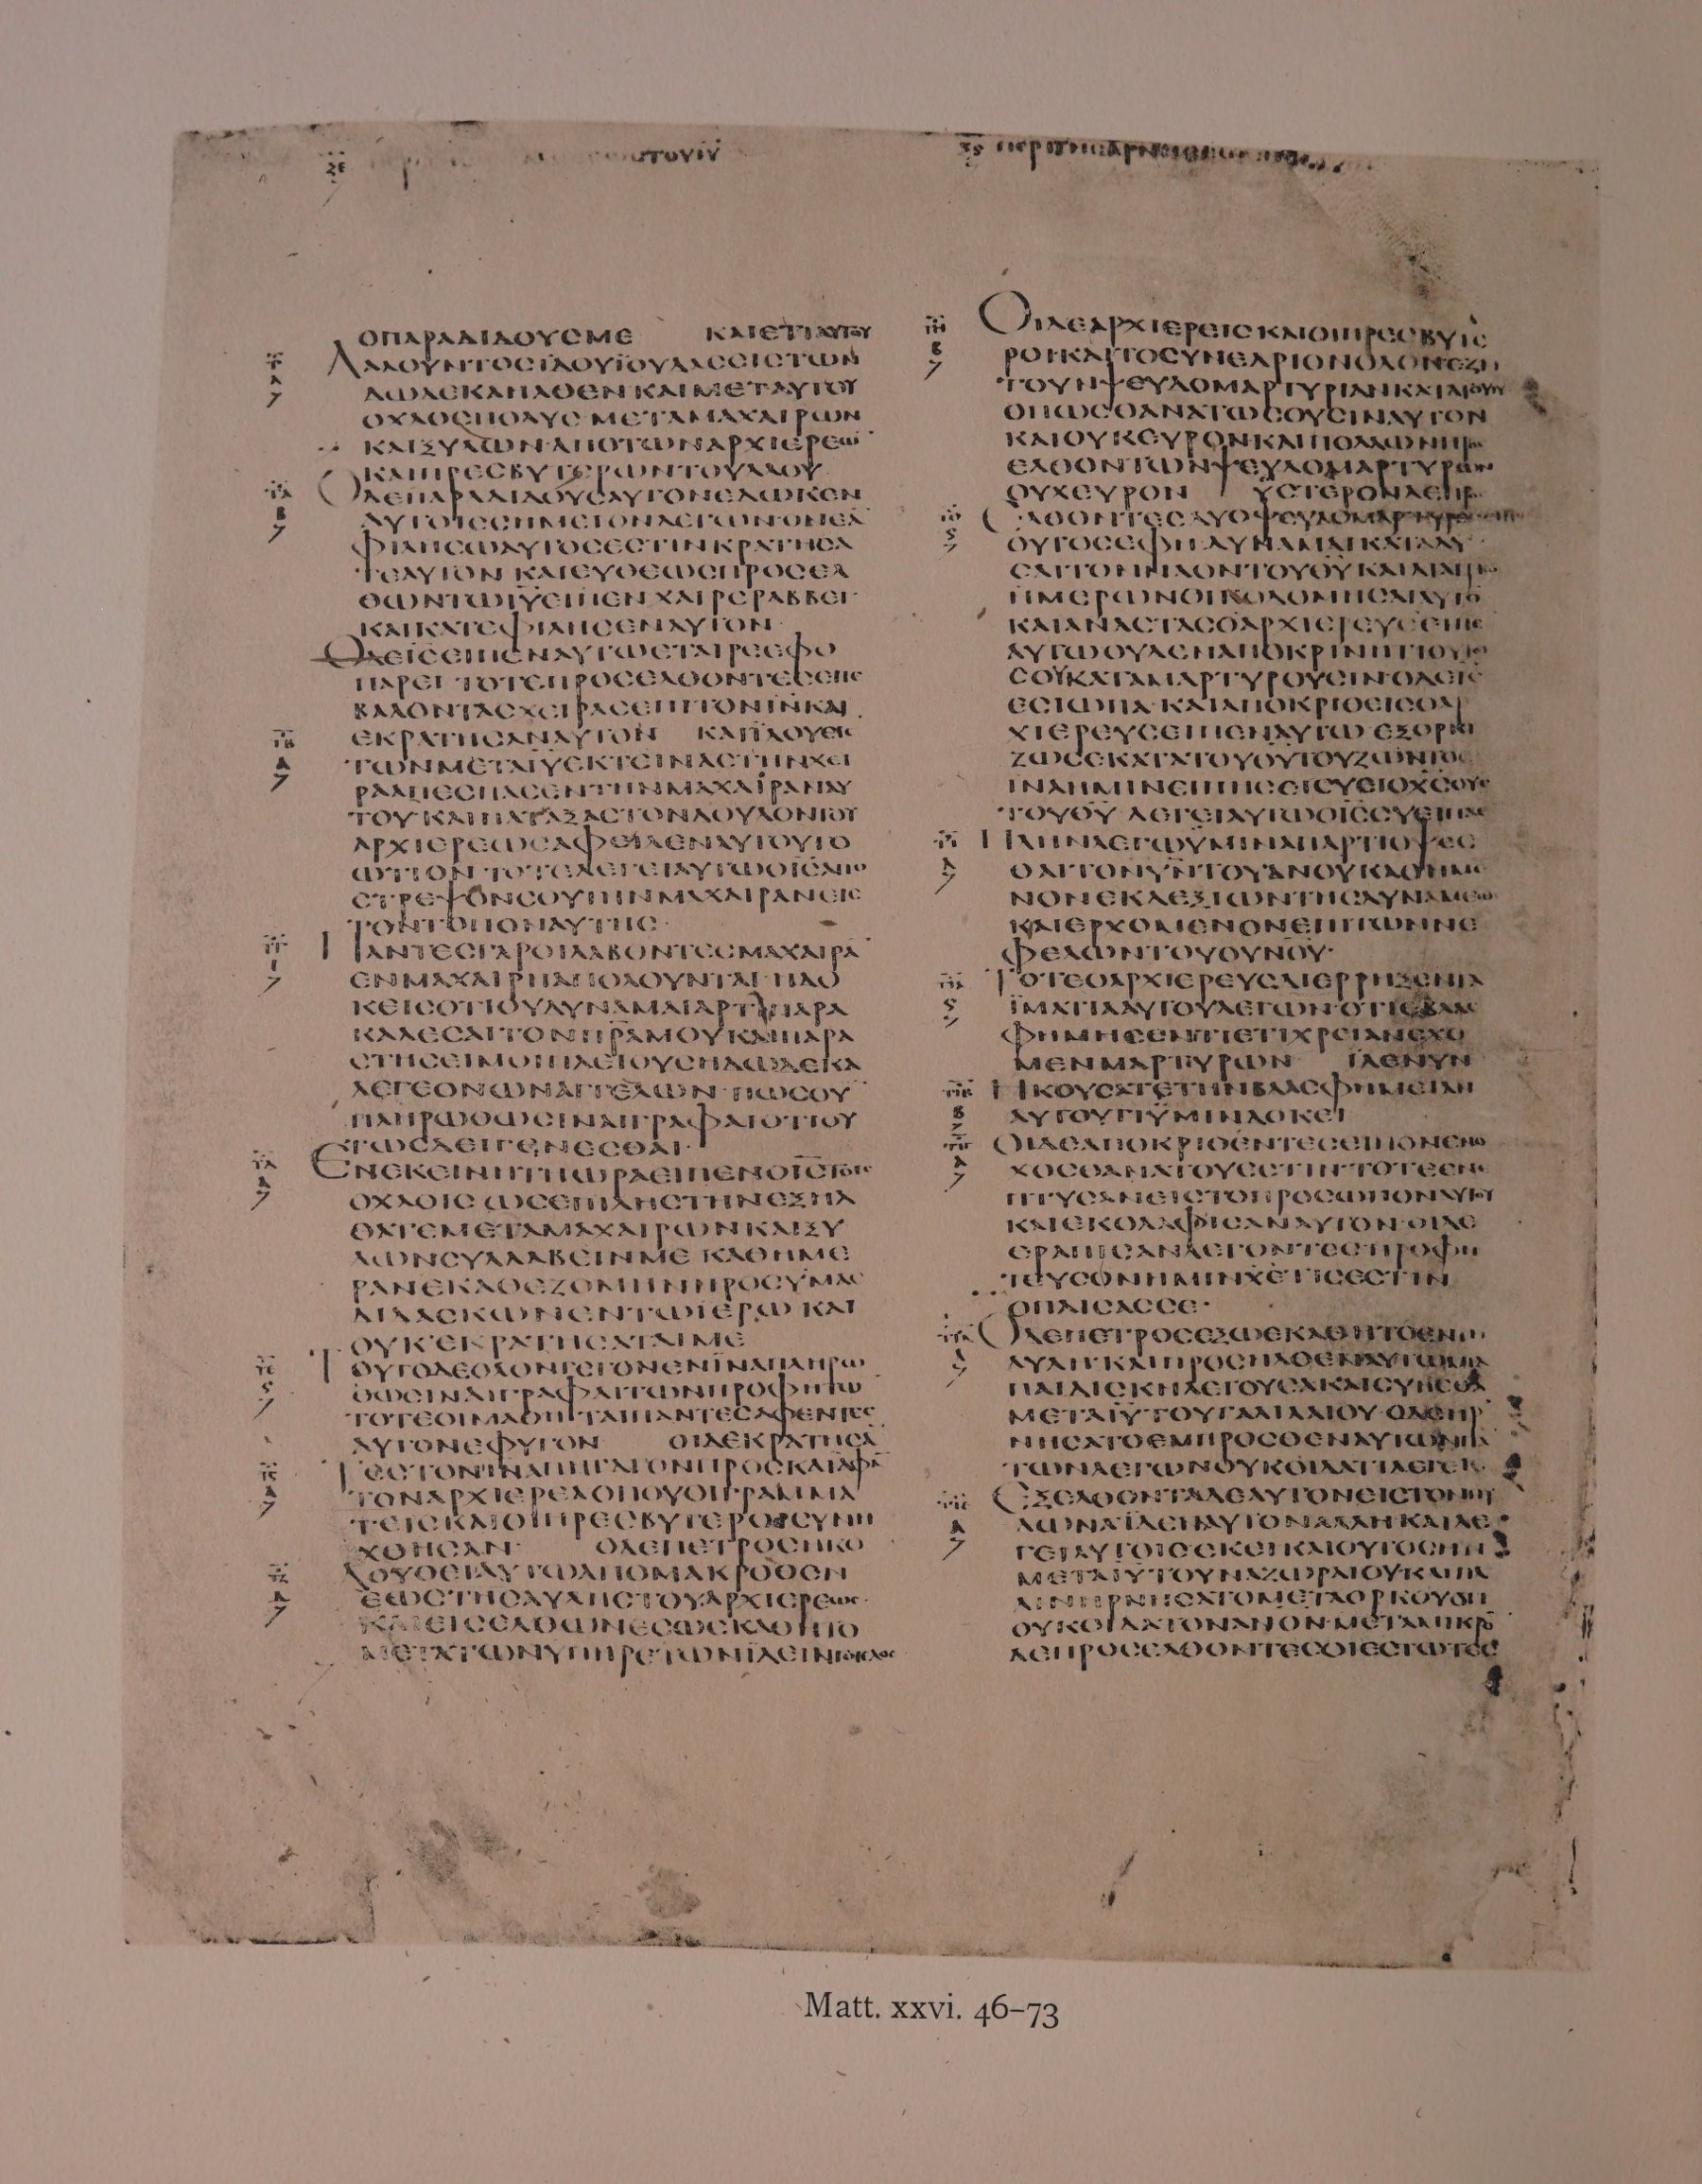 ΟΠΑΡΑΔΙΔΟΥϹΜΕ ΚΑΙΕΤΙΑΥΤΟΥ
ΛΑΛΟΥΝΤΟϹΪΔΟΥΪΟΥΔΑϹΕΙϹΤΩΝ
ΔΩΔΕΚΑΗΛΘΕΝΚΑΙΜΕΤΑΥΤΟΥ
ΟΧΛΟϹΠΟΛΥϹΜΕΤΑΜΑΧΑΙΡΩΝ
ΚΑΙΞΥΛΩΝΑΠΟΤΩΝΑΡΧΙΕΡΕΩ̅
ΚΑΙΠΡΕϹΒΥΤΕΡΩΝΤΟΥΛΑΟΥ
ΟΔΕΠΑΡΑΔΙΔΟΥϹΑΥΤΟΝΕΔΩΚΕΝ
ΑΥΤΟΙϹϹΗΜΕΙΟΝΛΕΓΩΝΟΝΕΑ̅
ΦΙΛΗϹΩΑΥΤΟϹΕϹΤΙΝΚΡΑΤΗϹΑ
ΤΕΑΥΤΟΝ ΚΑΙΕΥΘΕΩϹΠΡΟϹΕΛ
ΘΩΝΤΩΙΥ̅ΕΙΠΕΝ ΧΑΙΡΕΡΑΒΒΕΙ
ΚΑΙΚΑΤΕΦΙΛΗϹΕΝΑΥΤΟΝ
ΟΔΕΙϹ̅ΕΙΠΕΝΑΥΤΩΕΤΑΙΡΕΕΦΟ
ΠΑΡΕΙ ΤΟΤΕΠΡΟϹΕΛΘΟΝΤΕϹΕΠΕ
ΒΑΛΟΝΤΑϹΧΕΙΡΑϹΕΠΙΤΟΝΙΝ̅ΚΑΙ
ΕΚΡΑΤΗϹΑΝΑΥΤΟΝ ΚΑΙΪΔΟΥΕΙϹ
ΤΩΝΜΕΤΑΙΥ̅ΕΚΤΕΙΝΑϹΤΗΝΧΕΙ
ΡΑΑΠΕϹΠΑϹΕΝΤΗΝΜΑΧΑΙΡΑΝΑΥ
ΤΟΥ ΚΑΙΠΑΤΑΞΑϹΤΟΝΔΟΥΛΟΝΤΟΥ
ΑΡΧΙΕΡΕΩϹΑΦΕΙΛΕΝΑΥΤΟΥΤΟ
ΩΤΙΟΝ ΤΟΤΕΛΕΓΕΙΑΥΤΩΟΙϹ̅ΑΠΟ
ϹΤΡΕΨΟΝϹΟΥΤΗΝΜΑΧΑΙΡΑΝΕΙϹ
ΤΟΝΤΟΠΟΝΑΥΤΗϹ
ΠΑΝΤΕϹΓΑΡΟΙΛΑΒΟΝΤΕϹΜΑΧΑΙΡΑ̅
ΕΝΜΑΧΑΙΡΗΑΠΟΛΟΥΝΤΑΙ Η ΔΟ
ΚΕΙϹΟΤΙΟΥΔΥΝΑΜΑΙΑΡΤΙΠΑΡΑ
ΚΑΛΕϹΑΙΤΟΝΠΡ̅ΑΜΟΥΚΑΙΠΑΡΑ
ϹΤΗϹΕΙΜΟΙΠΛΕΙΟΥϹΗΔΩΔΕΚΑ
ΛΕΓΕΟΝΩΝΑΓΓΕΛΩΝ ΠΩϹΟΥ̅
ΠΛΗΡΩΘΩϹΙΝΑΙΓΡΑΦΑΙΟΤΙΟΥ
ΤΩϹΔΕΙΓΕΝΕϹΘΑΙ
ΕΝΕΚΕΙΝΗΤΗΩΡΑΕΙΠΕΝΟΙϹ̅ΤΟΙϹ
ΟΧΛΟΙϹ ΩϹΕΠΙΛΗϹΤΗΝΕΞΗΛ
ΘΑΤΕΜΕΤΑΜΑΧΑΙΡΩΝΚΑΙΞΥ
ΛΩΝϹΥΛΛΑΒΕΙΝΜΕ ΚΑΘΗΜΕ
ΡΑΝΕΚΑΘΕΖΟΜΗΝΠΡΟϹΥΜΑϹ
ΔΙΔΑϹΚΩΝΕΝΤΩΙΕΡΩ ΚΑΙ
ΟΥΚΕΚΡΑΤΗϹΑΤΑΙΜΕ
ΤΟΥΤΟΔΕΟΛΟΝΓΕΓΟΝΕΝΪΝΑΠΛΗΡΩ
ΘΩϹΙΝΑΙΓΡΑΦΑΙΤΩΝΠΡΟΦΗΤΩ̅
ΤΟΤΕΟΙΜΑΘΗΤΑΙΠΑΝΤΕϹΑΦΕΝΤΕϹ
ΑΥΤΟΝΕΦΥΓΟΝ ΟΙΔΕΚΡΑΤΗϹΑ̅
ΤΕϹΤΟΝΙΝ̅ΑΠΗΓΑΓΟΝΠΡΟϹΚΑΙΑΦΑ̅
ΤΟΝΑΡΧΙΕΡΕΑΟΠΟΥΟΙΓΡΑΜΜΑ
ΤΕΙϹΚΑΙΟΙΠΡΕϹΒΥΤΕΡΟΙϹΥΝΗ
ΧΘΗϹΑΝ ΟΔΕΠΕΤΡΟϹΗΚΟ
ΛΟΥΘΕΙΑΥΤΩΑΠΟΜΑΚΡΟΘΕΝ
ΕΩϹΤΗϹΑΥΛΗϹΤΟΥΑΡΧΙΕΡΕΩϹ
ΚΑΙΕΙϹΕΛΘΩΝΕϹΩΕΚΑΘΗΤΟ
ΜΕΤΑΤΩΝΥΠΗΡΕΤΩΝΪΔΕΙΝΤΟΤΕΛΟϹ
ΟΙΔΕΑΡΧΙΕΡΕΙϹΚΑΙΟΙΠΡΕϹΒΥΤΕ
ΡΟΙΚΑΙΤΟϹΥΝΕΔΡΙΟΝΟΛΟΝΕΖΗ
ΤΟΥΝΨΕΥΔΟΜΑΡΤΥΡΙΑΝΚΑΤΑΤΟΥΙΥ̅
ΟΠΩϹΘΑΝΑΤΩϹΟΥϹΙΝΑΥΤΟΝ
ΚΑΙΟΥΚΕΥΡΟΝΚΑΙΠΟΛΛΩΝΠΡΟϹ
ΕΛΘΟΝΤΩΝΨΕΥΔΟΜΑΡΤΥΡΩΝ
ΟΥΧΕΥΡΟΝ ΥϹΤΕΡΟΝΔΕΠΡΟϹ
ΕΛΘΟΝΤΕϹΔΥΟΨΕΥΔΟΜΑΡΤΥΡΕϹ
ΟΥΤΟϹΕΦΗΔΥΝΑΜΑΙΚΑΤΑΛΥ
ϹΑΙΤΟΝΝΑΟΝΤΟΥΘΥ̅ΚΑΙΔΙΑΤΡΙΩ̅
ΗΜΕΡΩΝΟΙΚΟΔΟΜΗϹΑΙΑΥΤΟ̅
ΚΑΙΑΝΑϹΤΑϹΟΑΡΧΙΕΡΕΥϹΕΙΠΕ̅
ΑΥΤΩΟΥΔΕΝΑΠΟΚΡΙΝΗΤΙΟΥΤΟΙ
ϹΟΥΚΑΤΑΜΑΡΤΥΡΟΥϹΙΝΟΔΕΙϹ̅
ΕϹΙΩΠΑ ΚΑΙΑΠΟΚΡΙΘΕΙϹΟΑΡ
ΧΙΕΡΕΥϹΕΙΠΕΝΑΥΤΩ ΕΞΟΡΚΙ
ΖΩϹΕΚΑΤΑΤΟΥΘΥ̅ΤΟΥΖΩΝΤΟϹ
ΙΝΑΗΜΙΝΕΙΠΗϹΕΙϹΥΕΙΟΧϹ̅ΟΥΙ̅Ϲ
ΤΟΥΘΥ̅ ΛΕΓΕΙΑΥΤΩΟΙϹ̅ϹΥΕΙΠΑϹ
ΠΛΗΝΛΕΓΩΥΜΙΝΑΠΑΡΤΙΟΨΕϹ
ΘΑΙΤΟΝΥΝ̅ΤΟΥΑΝΟΥ̅ΚΑΘΗΜΕ
ΝΟΝΕΚΔΕΞΙΩΝΤΗϹΔΥΝΑΜΕΩϹ
ΚΑΙΕΡΧΟΜΕΝΟΝΕΠΙΤΩΝΝΕ
ΦΕΛΩΝΤΟΥΟΥΝΟΥ̅
ΤΟΤΕΟΑΡΧΙΕΡΕΥϹΔΙΕΡΡΗΞΕΝΤΑ
ΪΜΑΤΙΑΑΥΤΟΥΛΕΓΩΝΟΤΙΕΒΛΑϹ
ΦΗΜΗϹΕΝΤΙΕΤΙΧΡΕΙΑΝΕΧΟ
ΜΕΝΜΑΡΤΥΡΩΝ ΪΔΕΝΥΝ
ΗΚΟΥϹΑΤΕΤΗΝΒΛΑϹΦΗΜΙΑΝ
ΑΥΤΟΥΤΙΫΜΙΝΔΟΚΕΙ
ΟΙΔΕΑΠΟΚΡΙΘΕΝΤΕϹΕΙΠΟΝΕΝΟ
ΧΟϹΘΑΝΑΤΟΥΕϹΤΙΝ ΤΟΤΕΕΝΕ
ΠΤΥϹΑΝΕΙϹΤΟΠΡΟϹΩΠΟΝΑΥΤΟΥ
ΚΑΙΕΚΟΛΑΦΙϹΑΝΑΥΤΟΝ ΟΙΔΕ
ΕΡΑΠΙϹΑΝΛΕΓΟΝΤΕϹΠΡΟΦΗ
ΤΕΥϹΟΝΗΜΙΝΧΕ̅ΤΙϹΕϹΤΙΝ
ΟΠΑΙϹΑϹϹΕ
ΟΔΕΠΕΤΡΟϹΕΞΩΕΚΑΘΗΤΟΕΝΤΗ
ΑΥΛΗ ΚΑΙΠΡΟϹΗΛΘΕΝΑΥΤΩΜΙΑ
ΠΑΙΔΙϹΚΗΛΕΓΟΥϹΑΚΑΙϹΥΗϹΘΑ
ΜΕΤΑΙΥ̅ΤΟΥΓΑΛΙΛΑΙΟΥ ΟΔΕΗΡ
ΝΗϹΑΤΟΕΜΠΡΟϹΘΕΝΑΥΤΩΝΠΑ̅
ΤΩΝΛΕΓΩΝΟΥΚΟΙΔΑΤΙΛΕΓΕΙϹ
ΕΞΕΛΘΟΝΤΑΔΕΑΥΤΟΝΕΙϹΤΟΝΠΥ
ΛΩΝΑΪΔΕΝΑΥΤΟΝΑΛΛΗ ΚΑΙΛΕ
ΓΕΙΑΥΤΟΙϹΕΚΕΙΚΑΙΟΥΤΟϹΗΝ
ΜΕΤΑΙΥ̅ΤΟΥΝΑΖΩΡΑΙΟΥΚΑΙΠΑ
ΛΙΝΗΡΝΗϹΑΤΟΜΕΤΑΟΡΚΟΥΟΤΙ
ΟΥΚΟΙΔΑΤΟΝΑΝΟΝ̅ΜΕΤΑΜΙΚΡΟ̅
ΔΕΠΡΟϹΕΛΘΟΝΤΕϹΟΙΕϹΤΩΤΕϹ
Matt. xxvi. 46–73